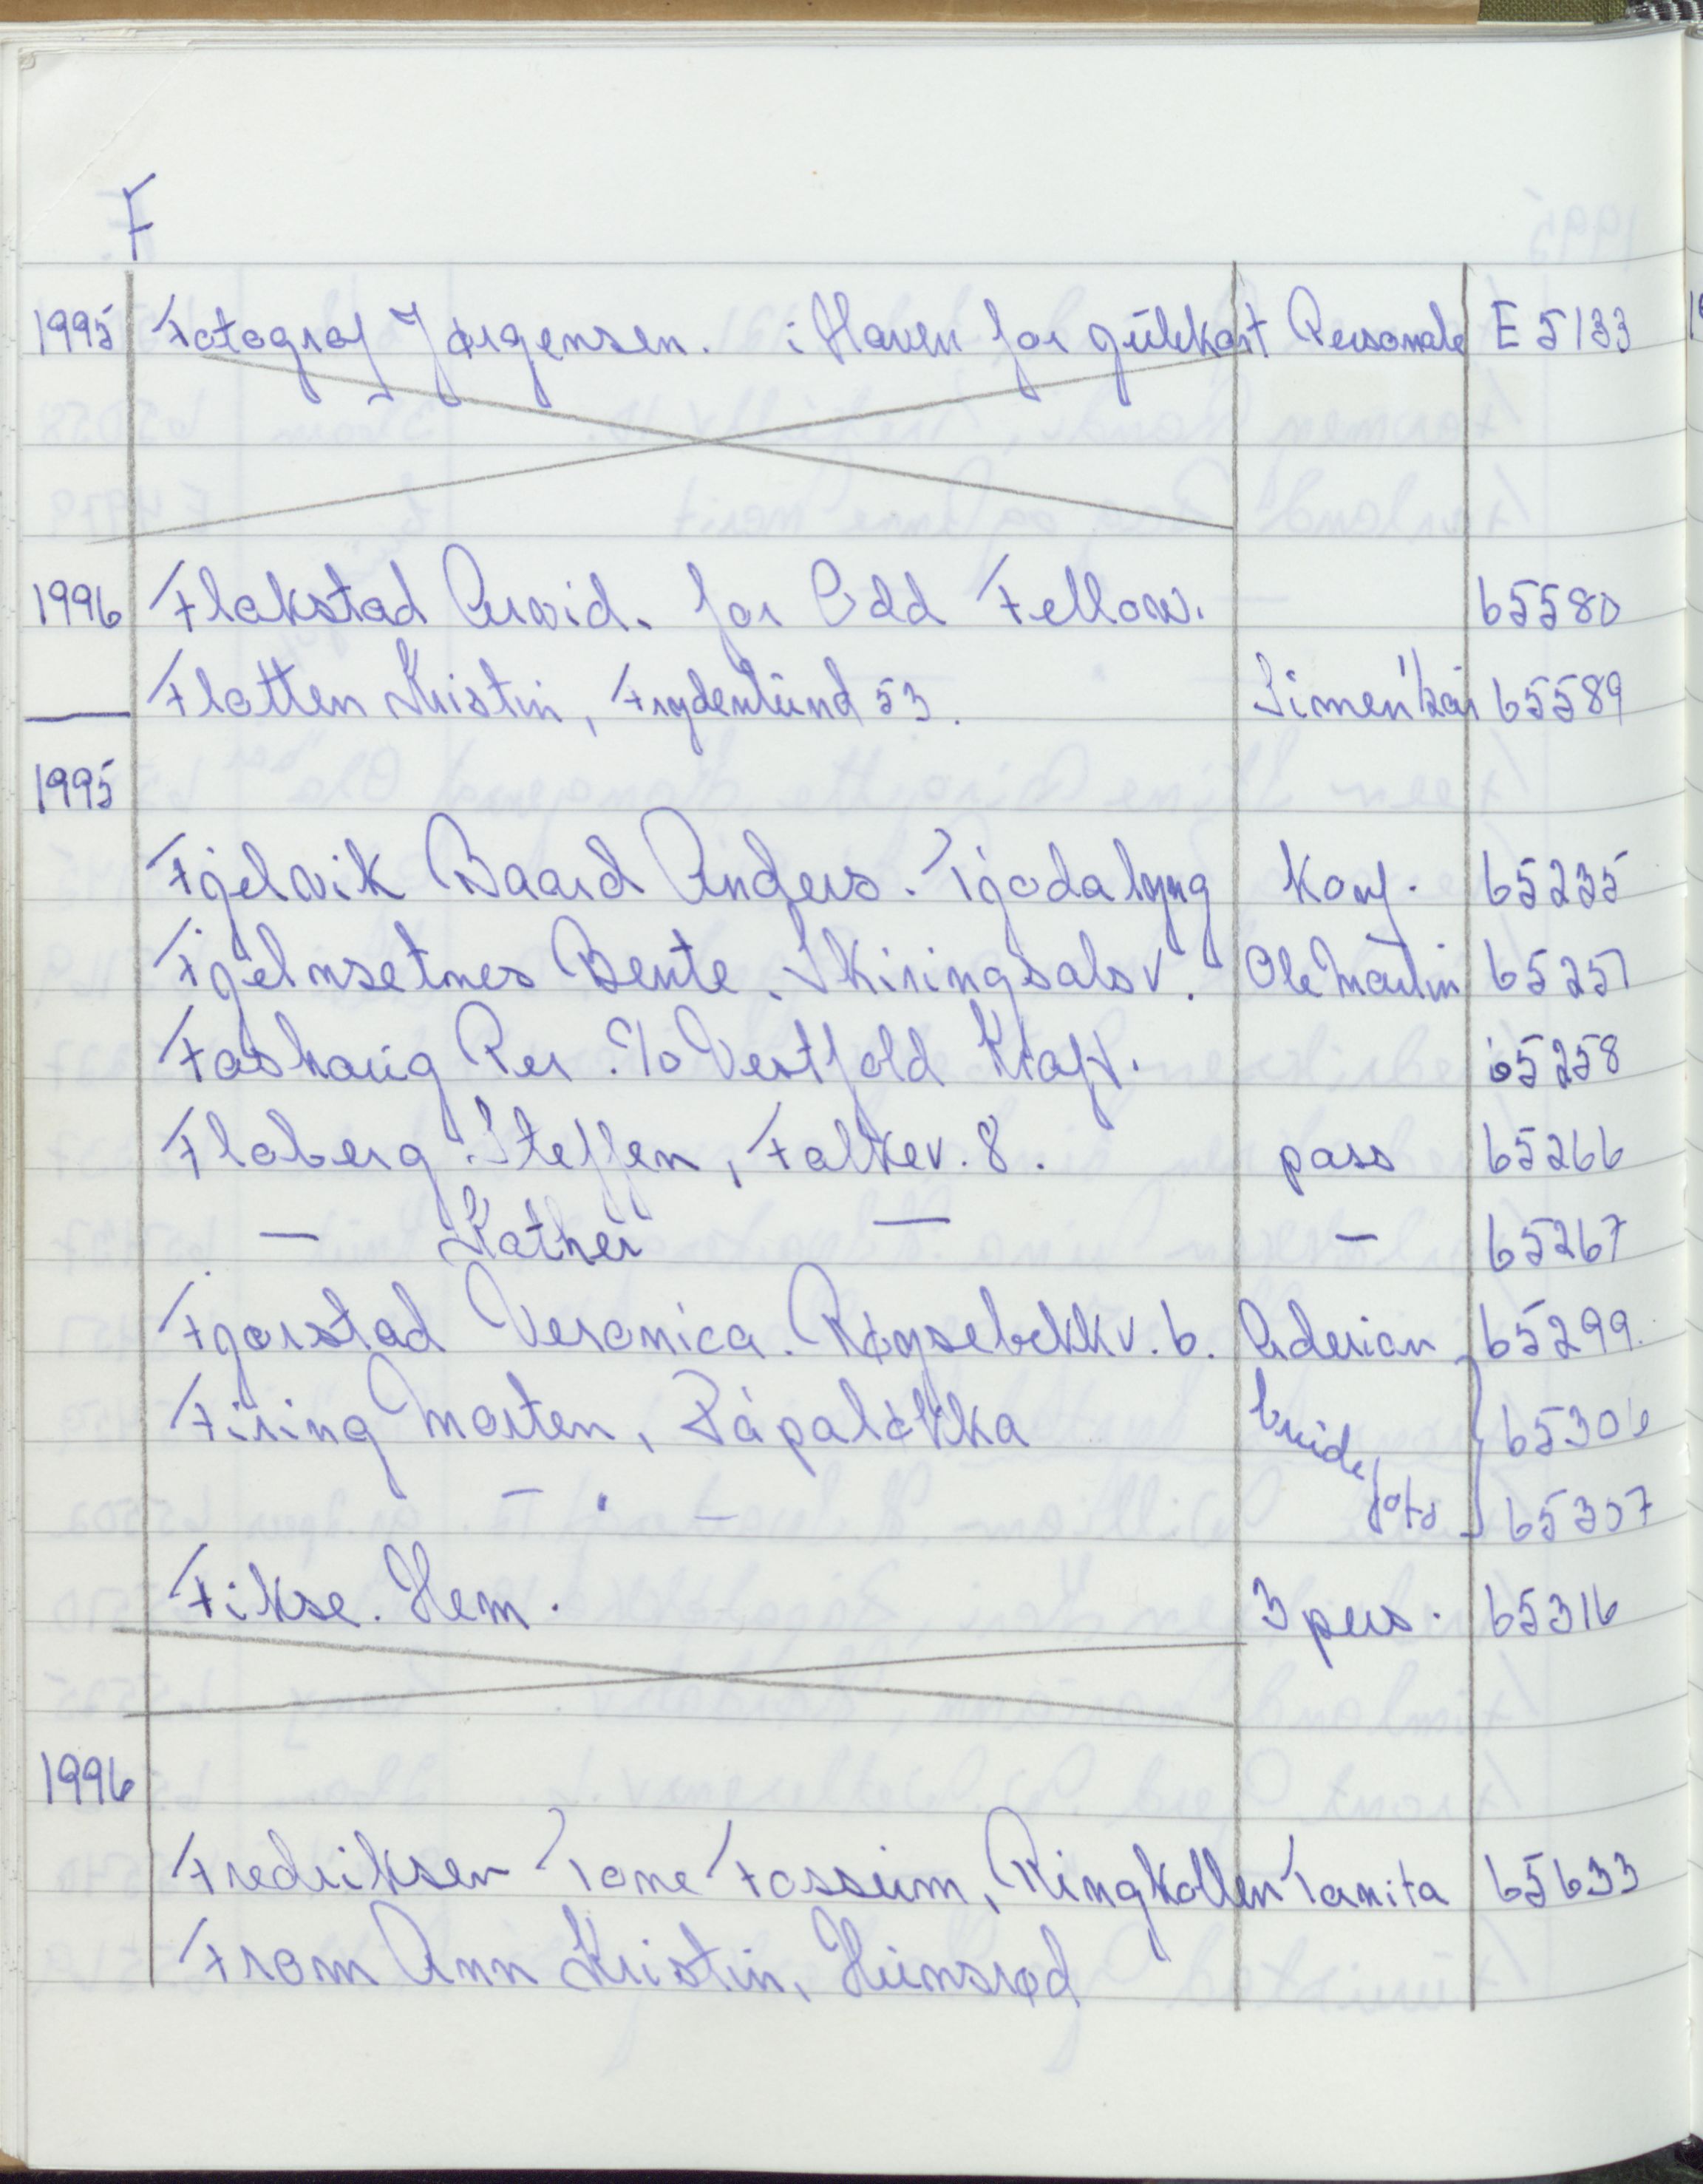 F
1995 Fotograf Jørgensen. i Haven for julekort Personale E 5133
1996 Flakstad Arvid. for Odd Fellow. 65580
— Flatten Kristin, Frydenlund 53. Simen 65589
1995
Fjelvik Baard Anders. Tjodalyng Konf. 65235
Fjelnsetnes Bente. Skiringsalsv. Ole Martin 65257
Foshaug Per. c/o Vestfold Kraft. 65258
Floberg Steffen, Falkev. 8. pass 65266
— Kathei — — 65267
Fjorstad Veronica. Røysebekkv. 6. Aderian 65299
Firing Morten, Råpaløkka brude 65306
— " — foto 65307
Fikse. Hem. 3 pers. 65316
1996
Fredriksen Tone Fossum, Ringkollen Tanita 65633
From Ann Kristin, Himsrød